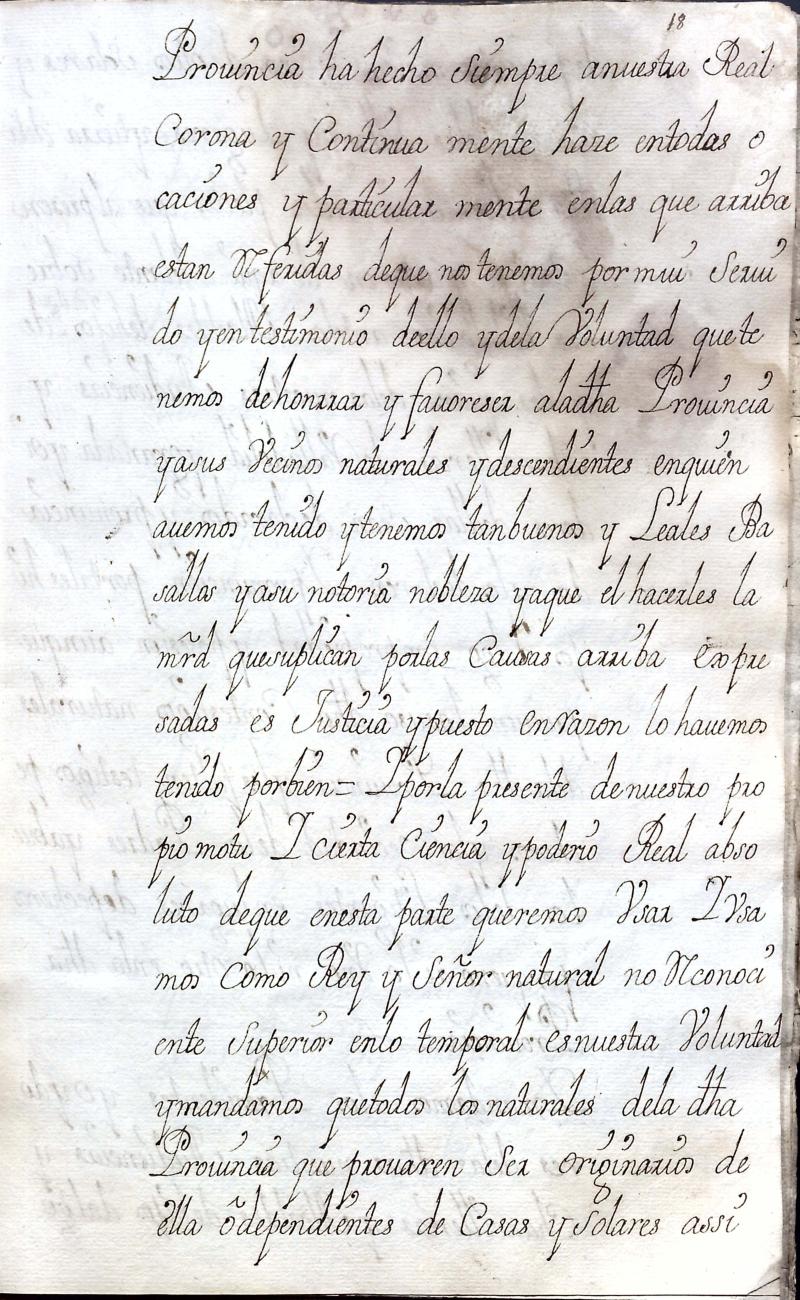 18
Provincia ha hecho siempre anuestra Real
Corona y Continua mente haze entodas o
caciones y particular mente enlas que arriba
estan Referidas deque nos tenemos por mui Serui
do yen testimonio deello ydela Voluntad que te
nemos dehonrrar y favoreser aladha Provincia
yasus Vecinos naturales ydescendientes enquien
auemos tenido ytenemos tanbuenos y Leales Ba
sallas yasu notoria nobleza yaque el hacerles la
mrd quesuplican porlas Causas arriba Expre
sadas es Justicia ypuesto en razon lo havemos
tenido porbien = Y porla presente denuestro pro
pio motu Y cierta Ciencia ypoderio Real abso
luto deque enesta parte queremos Vsar Y Vsa
mos Como Rey y Señor natural no Reconoci
ente Superior enlo temporal esnuestra Voluntad
ymandamos quetodos los naturales dela dha
Provincia que provaren Ser originarios de
ella õ dependientes de Casas y Solares assi